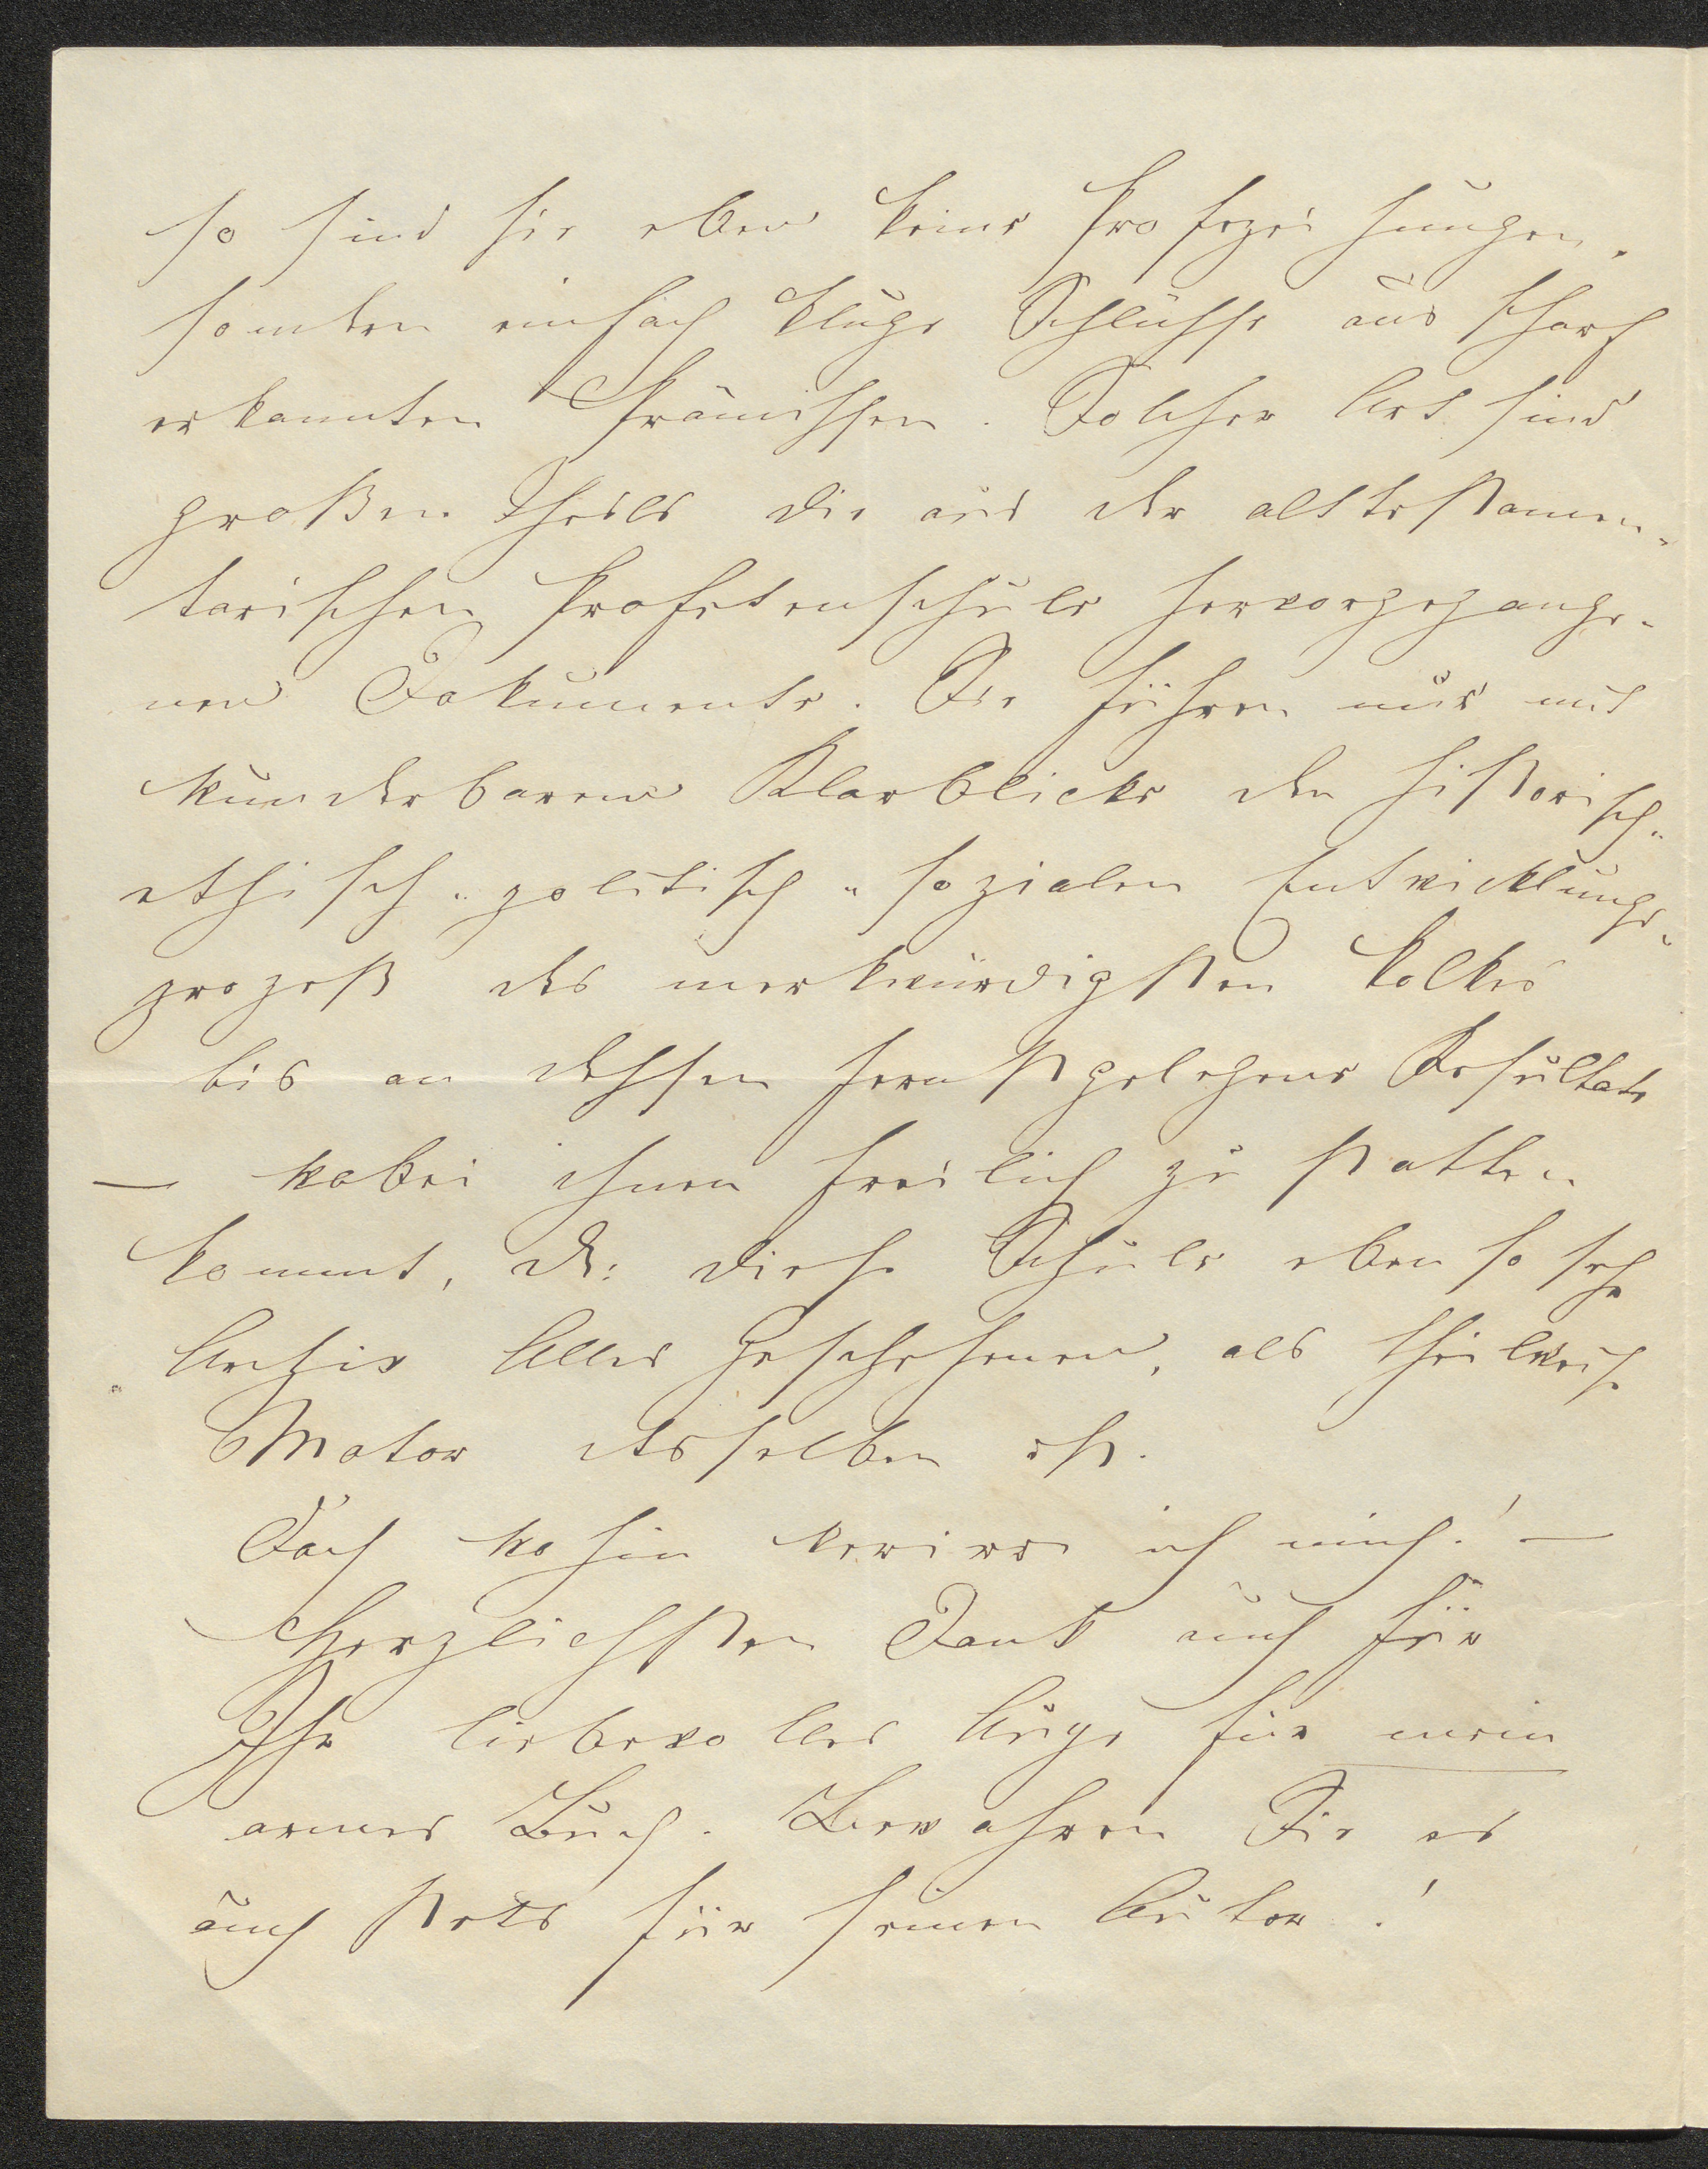 so sind sie eben keine Profezeihungen,
sondern einfach kluge Schlüsse aus scharf
erkannten Prämissen. Solcher Art sind
großen Theils die aus der alttestamen-
tarischen Profetenschule hervorgegange-
nen Dokumente. Sie führen nur mit
wunderbarem Klarblicke den historisch-
ethisch-politisch-sozialen Entwicklungs-
prozeß des merkwürdigsten Volkes
bis an dessen fernstgelegene Resultate
— wobei ihnen freilich zu statten
kommt, dß: diese Schule eben so sehr
Archiv Alles Geschehenen, als theilweise
Motor desselben ist.
Doch wohin verirre ich mich! —
Herzlichsten Dank auch für
Ihr liebevolles Auge für mein
armes Buch. Bewahren Sie es
auch stets für seinen Autor!